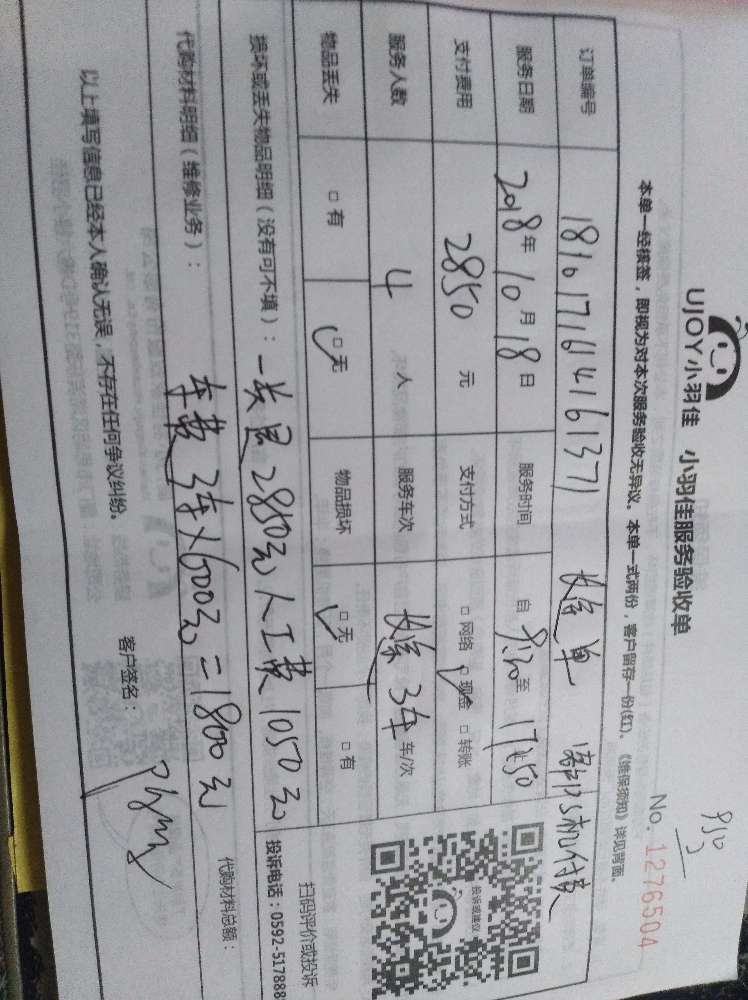 UJOY小羽佳 小羽佳服务验收单
950
No. 1276504
本单一经核签，即视为对本次服务验收无异议。本单一式两份，客户留存一份(红)。《维保须知》详见背面。
订单编号 1810171614161371 长途单
服务日期 2018年10月18日 服务时间 自9:30至17:50
支付费用 2850元 支付方式 □网络 □现金 □转账
服务人数 4人 服务车次 长途3车 车/次
物品丢失 □有 □无 物品损坏 □无 □有
损坏或丢失物品明细（没有可不填）：一共退2850元 人工费1050元
车费3车×600元=1800元
代购材料明细（维修业务）： 代购材料总额：
以上填写信息已经本人确认无误，不存在任何争议纠纷。 客户签名：
投诉或建议
扫码评价或投诉
投诉电话：0592-517888